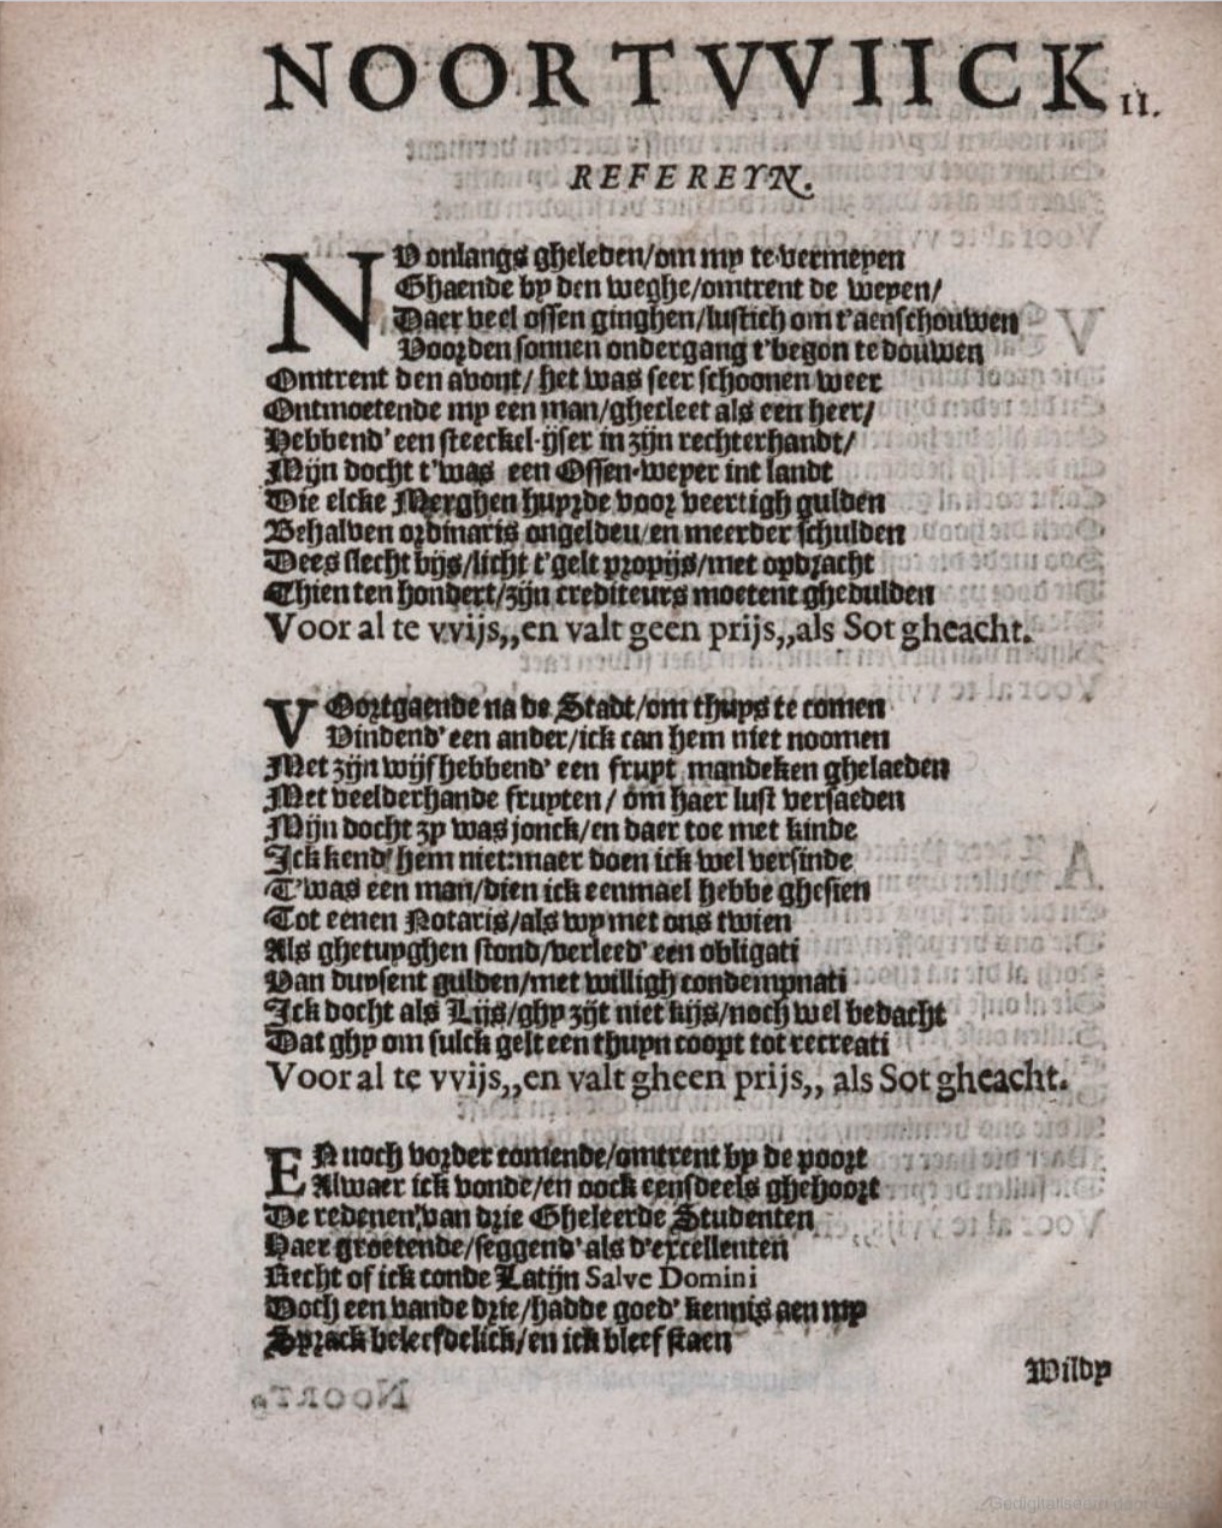 NOORTVVIICK
II.
REFEREYN.
NV onlangs gheleden/om my te vermeyen
Ghaende by den weghe/omtrent de weyen/
Daer veel ossen ginghen/lustich om t'aenschouwen
Voor den sonnen ondergang t'begon te douwen
Omtrent den avont/ het was seer schoonen weer
Ontmoetende my een man/ghecleet als een heer/
Hebbend' een steeckel-ijser in zijn rechterhandt/
Mijn docht t'was een Ossen-weyer int landt
Die elcke Merghen huyrde voor veertigh gulden
Behalven ordinaris ongeldeu/en meerder schulden
Dees slecht bijs/licht t'gelt propijs/met opdracht
Thien ten hondert/zijn crediteurs moetent ghedulden
Voor al te vvijs,,en valt geen prijs,,als Sot gheacht.
VOortgaende na de Stadt/om thuys te comen
Vindend' een ander/ick can hem niet noomen
Met zijn wijf hebbend' een fruyt mandeken ghelaeden
Met veelderhande fruyten/ om haer lust versaeden
Mijn docht zy was jonck/en daer toe met kinde
Ick kend' hem niet:maer doen ick wel versinde
T'was een man/dien ick eenmael hebbe ghesien
Tot eenen Notaris/als wy met ons twien
Als ghetuyghen stond/verleed' een obligati
Van duysent gulden/met willigh condempnati
Ick docht als Lijs/ghy zijt niet kijs/noch wel bedacht
Dat ghy om sulck gelt een thuyn coopt tot recreati
Voor al te vvijs,,en valt gheen prijs,, als Sot gheacht.
EN noch vorder comende/omtrent by de poort
Alwaer ick vonde/en oock eensdeels ghehoort
De redenen,van drie Gheleerde Studenten
Haer groetende/seggend' als d'excellenten
Recht of ick conde Latijn Salve Domini
Doch een vande drie/hadde goed' kennis aen my
Sprack beleefdelick/en ick bleef staen
Wildy